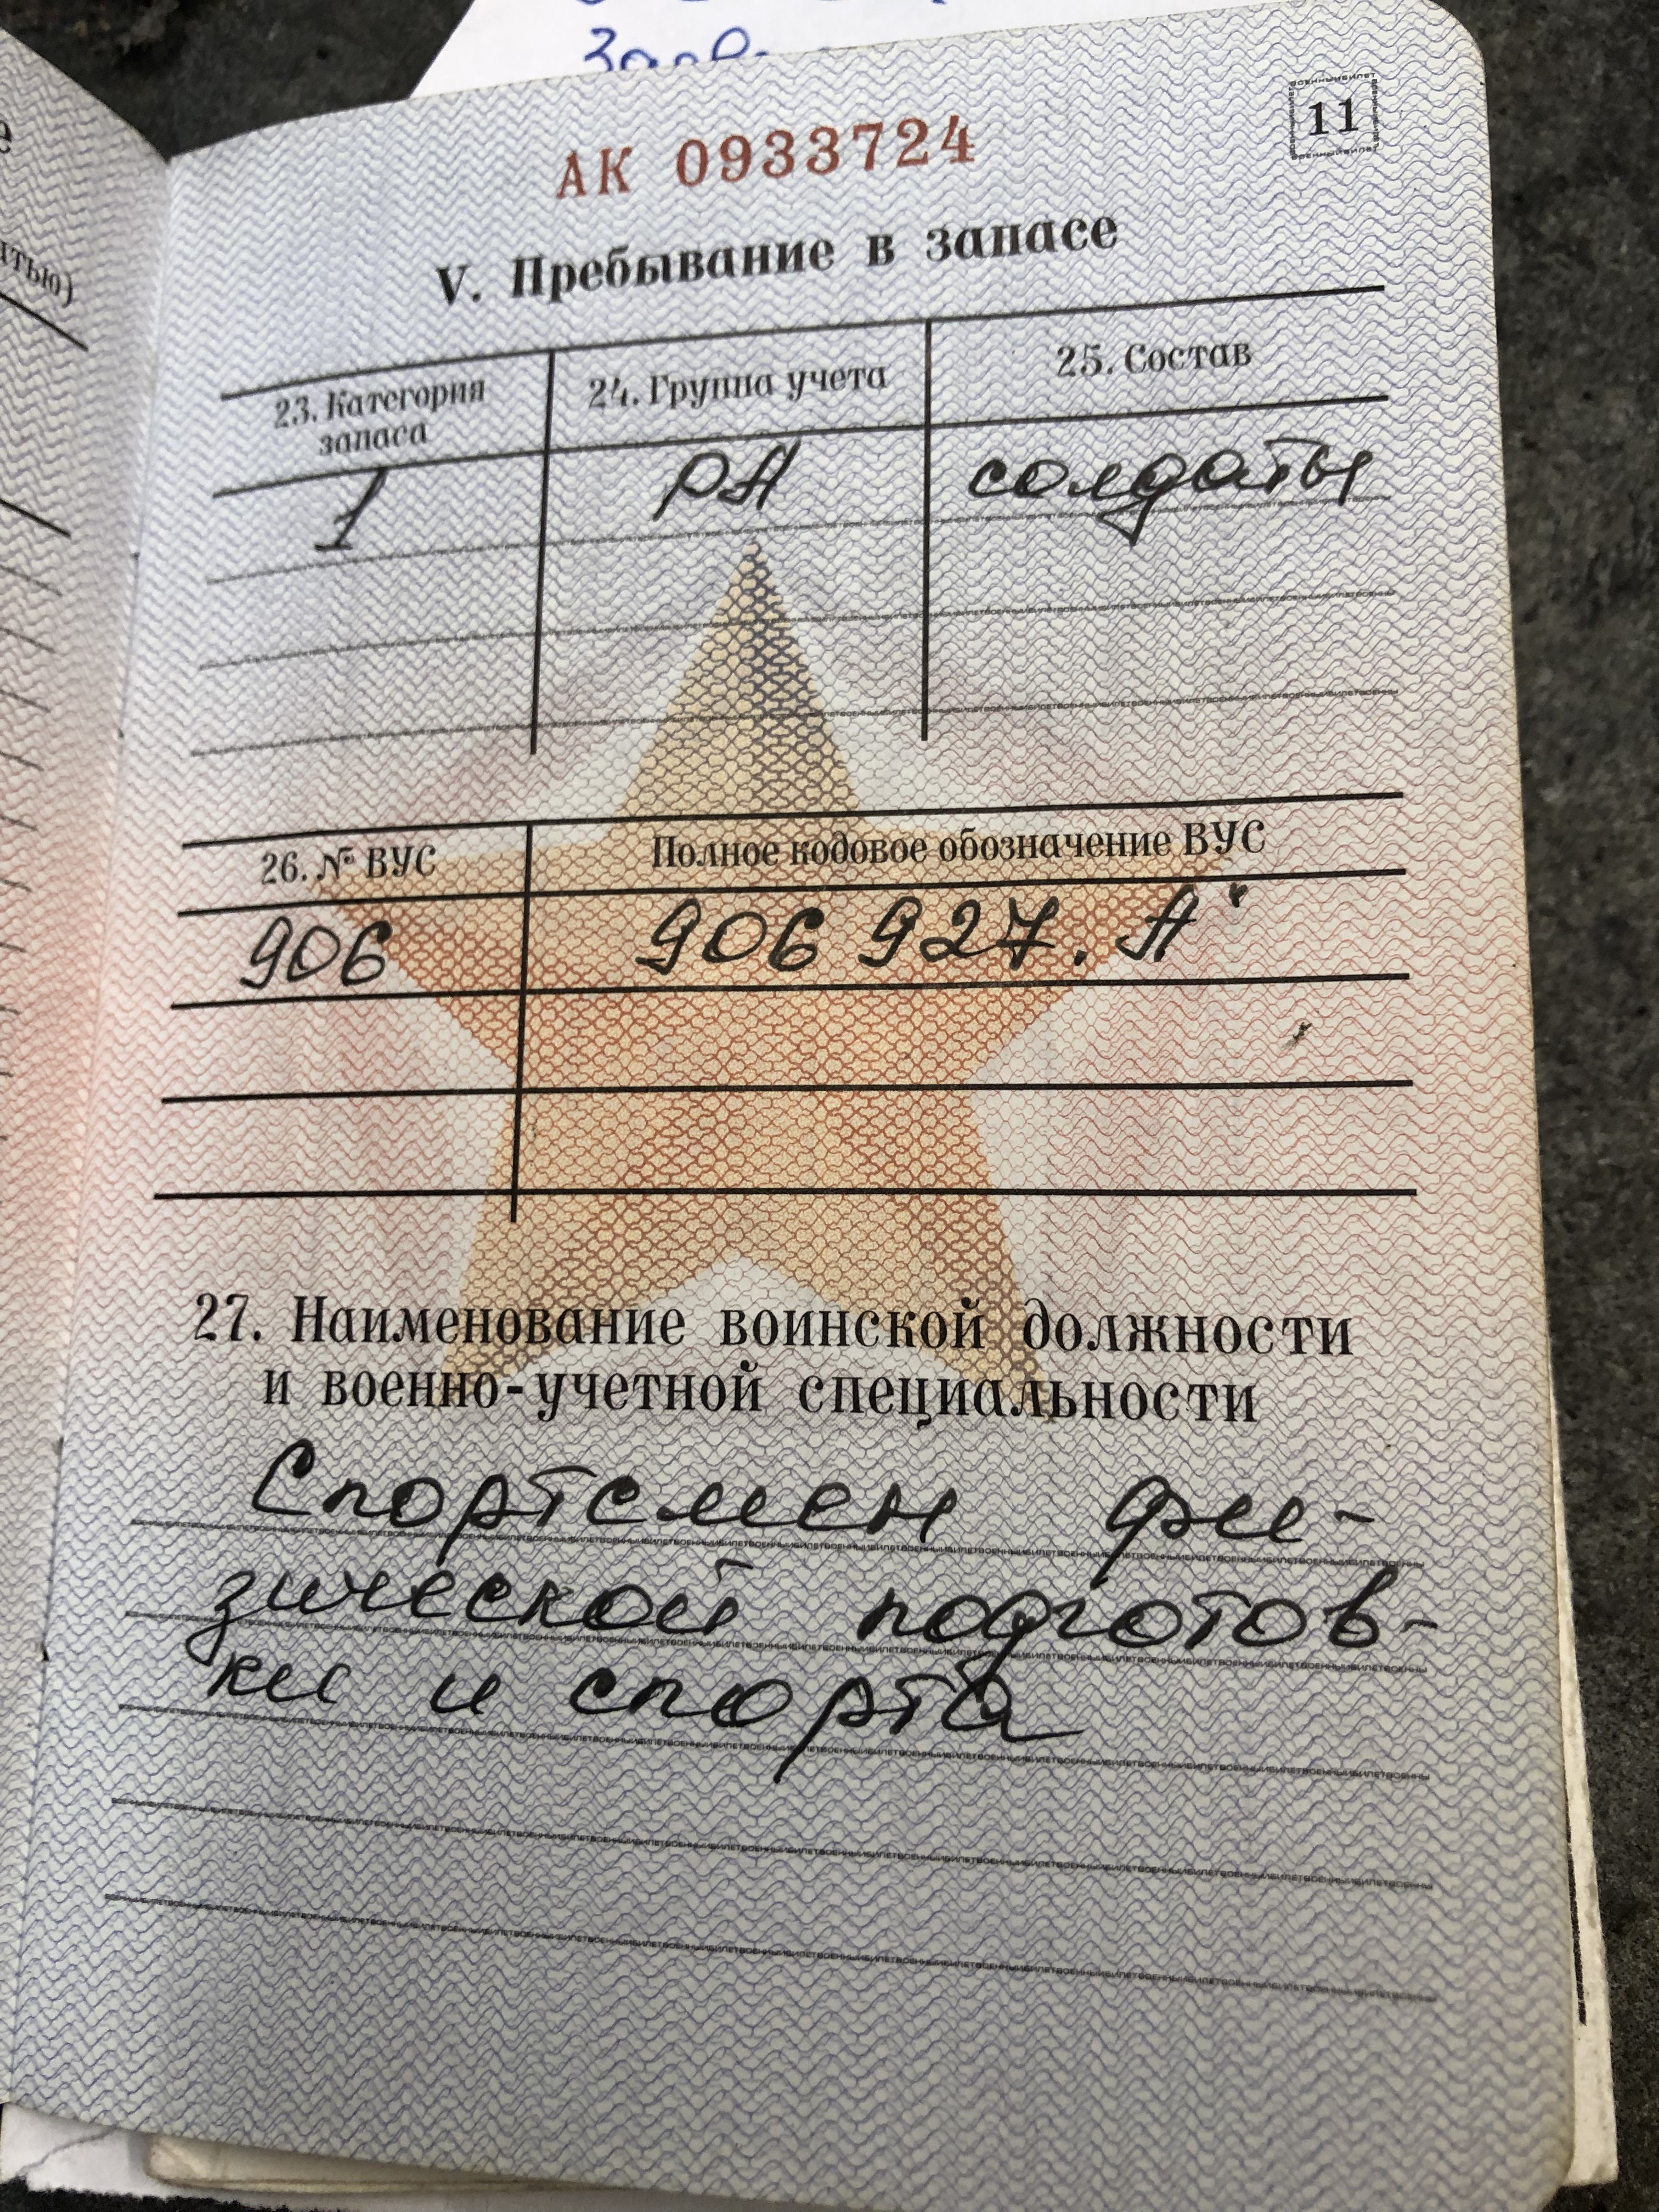 11
АК 0933724
V. Пребывание в запасе
23. Категория
запаса
24. Группа учета
25. Состав
1
РА
солдаты
26. № ВУС
Полное кодовое обозначение ВУС
906
906 927. А"
27. Наименование воинской должности
и военно-учетной специальности
Спортсмен фи-
зической подготов-
ки и спорта